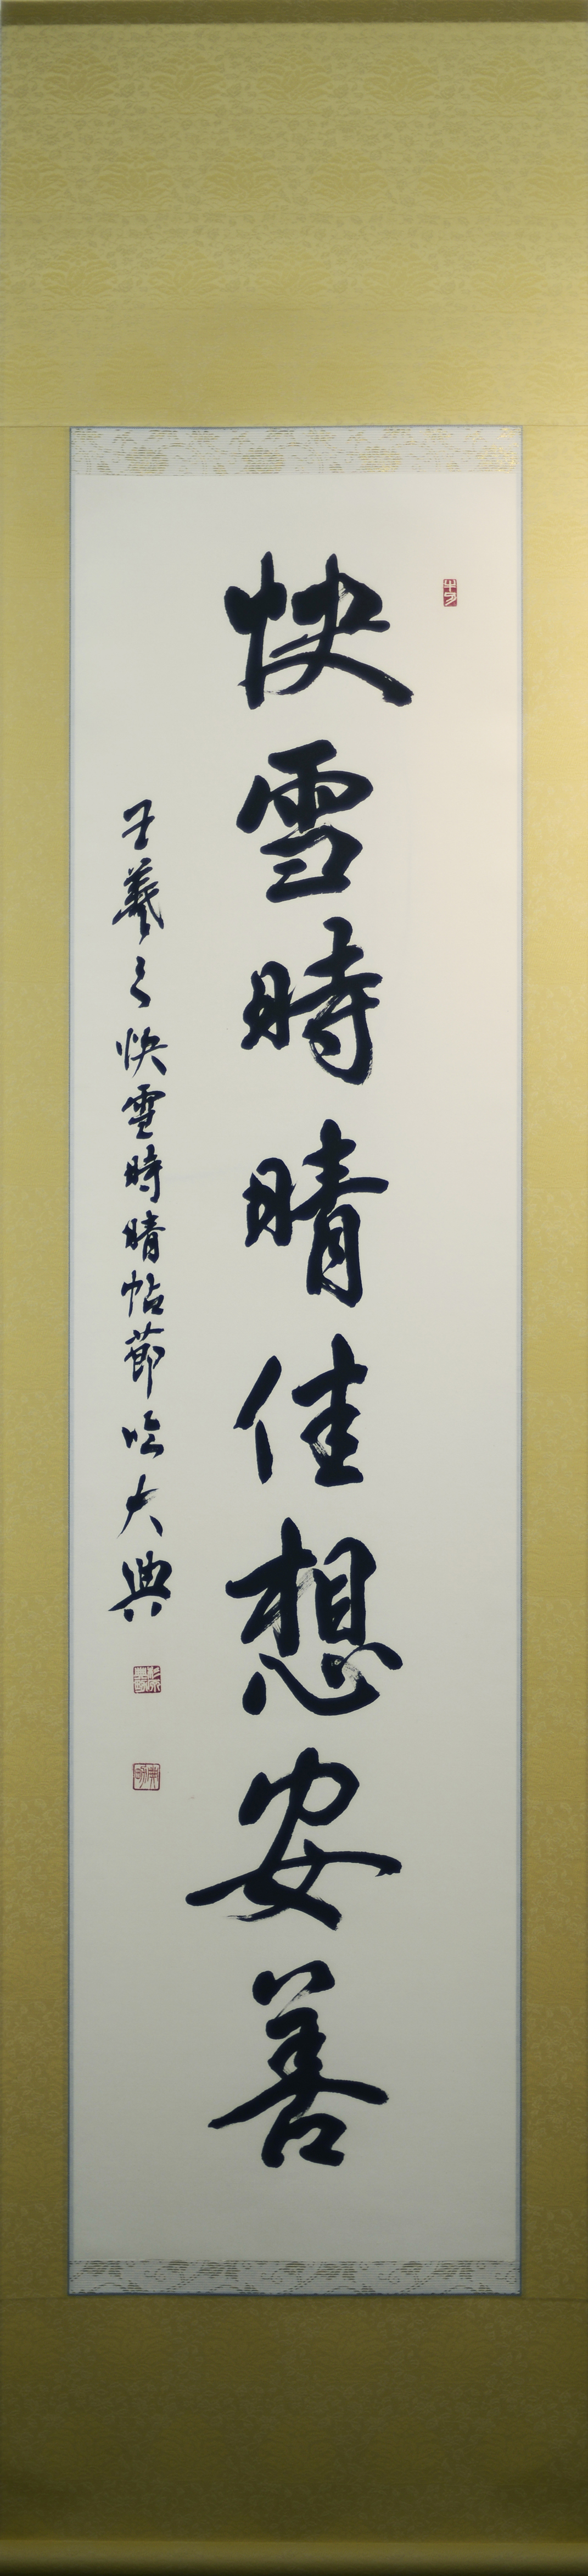 快雪時晴佳想安善
王羲之快雪時晴帖節臨大典